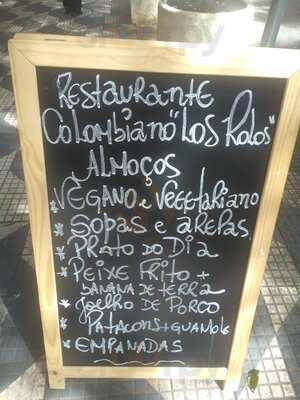 Restaurante
Colombiano "Los Rolos"
Almoços
* Vegano e Vegetariano
* Sopas e arepas
* Prato do Dia
* Peixe Frito +
banana de terra
* Joelho de Porco
* Patacons + guamole
* Empanadas